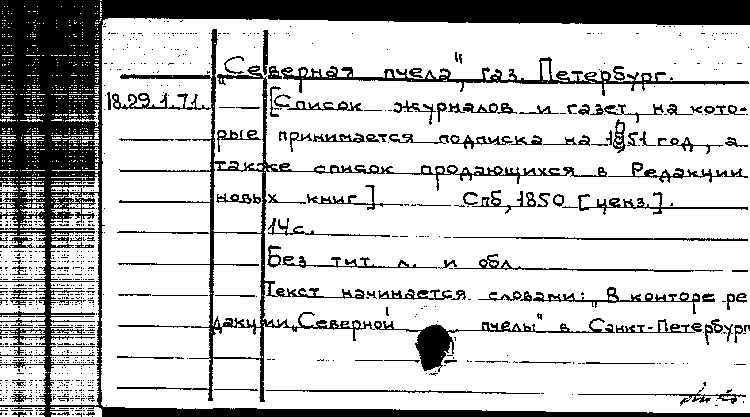 „Северная пчела", газ. Петербург.
18.29.1.71. [Список журналов и газет, на кото-
рые принимается подписка на 1851 год, а
также список продающихся в Редакции
новых книг]. Спб, 1850 [ценз.].
14 с.
Без тит. л. и обл.
Текст начинается словами: „В конторе ре
дакции „Северной пчелы" в Санкт-Петербург